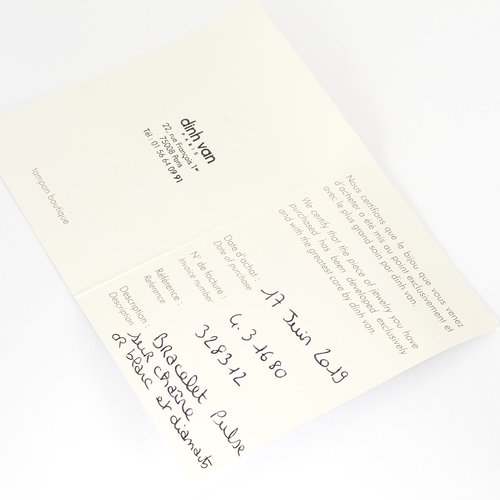 dinh van
PARIS
22, rue François 1er
75008 Paris
Tél : 01 56 64 09 91
tampon boutique
Nous certifions que le bijou que vous venez
d'acheter a été mis au point exclusivement et
avec le plus grand soin par dinh van.
We certify that the piece of jewelry you have
purchased has been developed exclusively
and with the greatest care by dinh van.
Date d'achat : 17 Juin 2019
Date of purchase
N° de facture : G.31680
Invoice number
Référence : 328312
Reference
Description : Bracelet Pulse
Description sur chaîne
or blanc et diamants